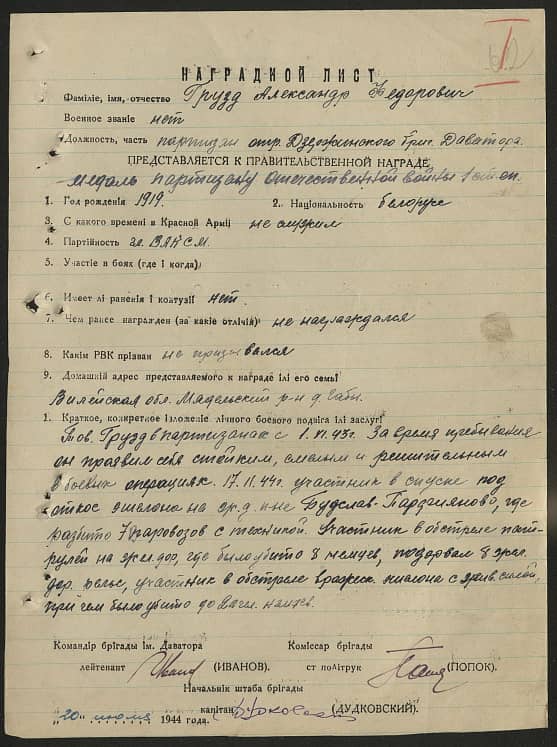 НАГРАДНОЙ ЛИСТ
Фаміліе, імя, отчество Грузд Александр Федорович
Военное званіе нет
Должность, часть партизан отр. Дзержинского бриг. Даватора.
ПРЕДСТАВЛЯЕТСЯ К ПРАВИТЕЛЬСТВЕННОЙ НАГРАДЕ
медаль партизану отечественной войны
1. Год рожденія 1919. 2. Національность белорус
3. С какого времені в Красной Армії не служил
4. Партійность чл. ВЛКСМ.
5. Участіе в боях (где і когда)
6. Імеет лі раненія і контузії нет.
7. Чем ранее награжден (за какіе отлічія) не награждался
8. Какім РВК прізван не призывался
9. Домашній адрес представляемого к награде ілі его семьі
Вилейская обл. Мядельский р-н д.
І. Краткое, конкретное ізложеніе лічного боевого подвіга ілі заслуг
Тов. Грузд в партизанах с 1.VI.43г. За время пребывания
он проявил себя стойким, смелым и решительным
в боевых операциях. 17.II.44г. участник в спуске под
откос эшалона на ж.д. л-не Будслав-Пардзиянова, где
разбито паровозов с техникой. Участник в обстреле пат-
рулей на жел.дор, где было убито 8 немцев, подорвал 8 жел.
дор. рельс, участник в обстреле вражеск. с жив. силой,
при чем было убито до
Командір брігады ім. Даватора Коміссар брігады
лейтенант (ИВАНОВ). ст політрук (ПОПОК).
Начальнік штаба брігады
капітан (ДУДКОВСКИЙ).
"20" июля 1944 года.